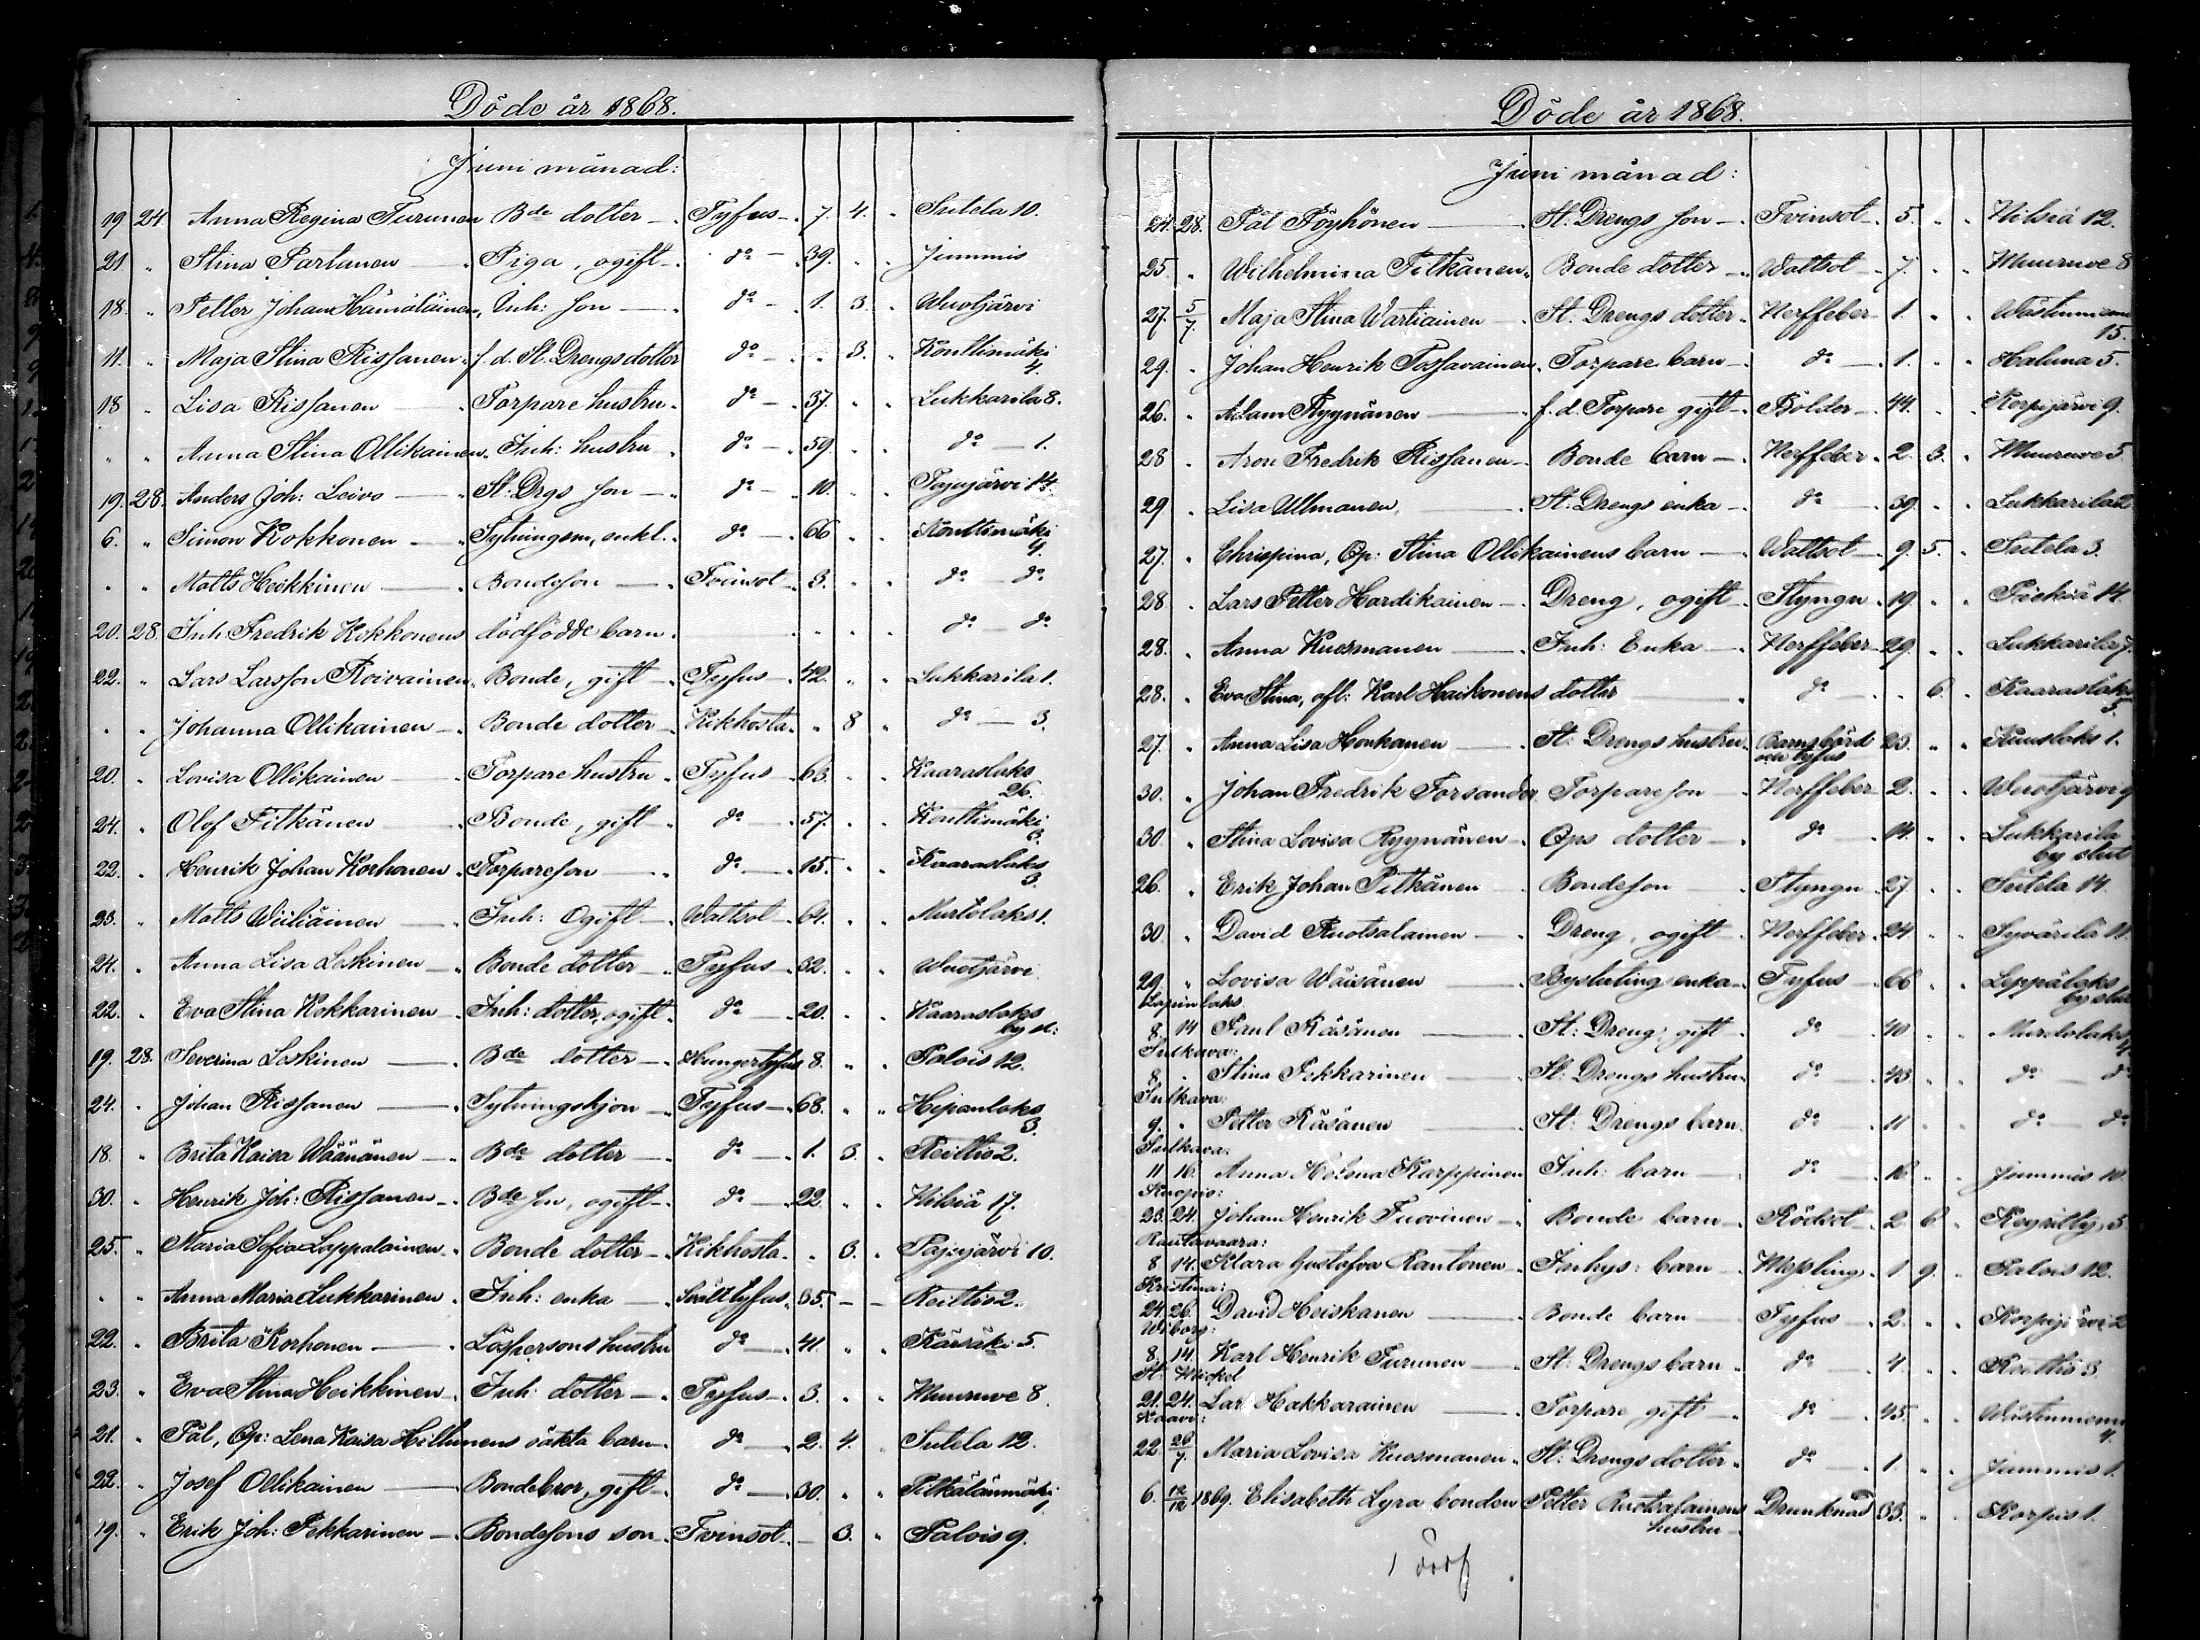 Döde år 1868.
Juni månad:
19 24 Anna Regina Turunen Bde dotter Tyfus 7. 4. Sutela 10.
21 " Stina Partanen Piga, ogift do 39. Jummis
18. " Petter Johan Hämäläinen, Inh: son do 1. 3. Wuotjärvi
11. " Maja Stina Rissanen f. d. St. Drengs dotter do " 3. Konttimäki 4.
18 " Lisa Rissanen Torpare hustru do 37. Lukkarila 8.
" " Anna Stina Ollikainen Inh: hustru do 59. do 1.
19. 28. Anders Joh: Leivo St: Drgs son do 10. Pajujärvi 14.
6. " Simon Kokkonen Sytningsm, enkl. do 66 Konttimäki 4.
" " Matts Heikkinen Bondeson Tvinsot 3. do do
20. 28. Inh Fredrik Kokkonens dödfödde barn do do
22. " Lars Larsson Roivainen Bonde, gift Tyfus 42. Lukkarila 1.
" " Johanna Ollikainen Bonde dotter Kikhosta " 8 do 3.
20. " Lovisa Ollikainen Torpare hustru Tyfus 63. Kaaraslaks 26.
24. " Olof Pitkänen Bonde, gift do 57. Konttimäki 3.
22. " Henrik Johan Korhonen Torpareson do 15. Kaaraslaks 3.
23. " Matts Wiiliäinen Inh: Ogift Wattsot 64. Murtolaks 1.
24. " Anna Lisa Leskinen Bonde dotter Tyfus 32. Wuotjärvi
22. " Eva Stina Kokkarinen Inh: dotter, ogift do 20. Kaaraslaks by sl:
19. 28. Severina Leskinen Bde dotter Hungertyfus 8. Palois 12.
24. " Johan Rissanen Sytningshjon Tyfus 68. Hipanlaks 3.
18. " Brita Kaisa Wäänänen Bde dotter do 1. 3. Reittio 2.
30. " Henrik Joh: Rissanen Bde son, ogift do 22 Nilsiä 17.
25. " Maria Sofia Lappalainen Bonde dotter Kikhosta " 3. Pajujärvi 10.
" " Anna Maria Lukkarinen Inh: enka Svälttyfus 35. Reittio 2.
22. " Brita Korhonen Löspersons hustru do 41 Kärsäki 5.
23. " Eva Stina Heikkinen Inh: dotter Tyfus 3. Muuruve 8.
21. " Pål, Qp: Lena Kaisa Hiltunens oäkta barn do 2. 4. Sutela 12.
22. " Josef Ollikainen Bondebror, gift do 30. Pitkälänmäki 1.
19. " Erik Joh: Pekkarinen Bondesons son Tvinsot 3. Palois 9.
Döde år 1868.
Juni månad:
24. 28. Pål Pöyhönen St. Drengs son Tvinsot 5. Nilsiä 12.
25. " Wilhelmina Pitkänen Bonde dotter Wattsot 7. Muuruve 8
27. 5/7. Maja Stina Wartiainen St. Drengs dotter Nerffeber 1. Wästinniemi 15.
29. " Johan Henrik Tossavainen Torpare barn do 1. Haluna 5.
26. " Adam Ryynänen f. d. Torpare gift Bölder 44. Korpijärvi 9.
28 " Aron Fredrik Rissanen Bonde barn Nerffeber 2. 3. Muuruve 5.
29 " Lisa Ullmanen St. Drengs enka do 39. Lukkarila 2
27. " Chrispina, Qp: Stina Ollikainens barn Wattsot 9. 5. Sutela 3.
28 " Lars Petter Hardikainen Dreng, ogift Styngn 19. 14.
28. " Anna Kuosmanen Inh: Enka Nerffeber 29. Lukkarila 7.
28. " Eva Stina, afl: Karl Haikonens dotter do 6. Kaaraslaks 5.
27. " Anna Lisa Honkanen St: Drengs hustru Barnsbörd och tyfus 23. 1.
30. " Johan Fredrik Forsander Torpareson Nerffeber 2. Wuotjärvi 9
30. " Stina Lovisa Ryynänen Qps dotter do 14. Lukkarila by slut
26. " Erik Johan Pitkänen Bondeson Styngn 27. Sutela 14.
30. " David Ruotsalainen Dreng, ogift Nerffeber 24 Syvärilä 11.
29. " Lovisa Wäisänen Bysluting enka Tyfus 66 Leppälaks by slut
Lapinlaks
8 14 Paul Räsänen St: Dreng: gift do 40 Murtolaks 4.
Sulkava:
8. " Stina Pekkarinen St: Drengs hustru do 43 do do
Sulkava:
9. " Petter Räsänen St: Drengs barn do 11 do do
Sulkava:
11 16. Anna Helena Karppinen Inh: barn do 16 Jummis 10
Kuopio:
23. 24. Johan Henrik Tuovinen Bonde barn Rödsot 2 6 Keyritty 5
Rautavaara:
8 14. Klara Gustafva Rautonen Inhys: barn Messling 1 9 Palois 12.
Kristina:
24. 26. David Heiskanen Bonde barn Tyfus 2. Korpijärvi 2
Wiborg:
8. 14. Karl Henrik Turunen St: Drengs barn do 4. Reittio 3.
St: Mickel
21. 24. Lars Hakkarainen Torpare gift do 45. Wästinniemi 4.
Kaavi:
22 26/7. Maria Lovisa Kuosmanen St: Drengs dotter do 1. Jummis 1.
6. 12/12 1869. Elisabeth Lyra bonden Petter Ruotsalainens hustru Drunknad 33. Korpis 1.